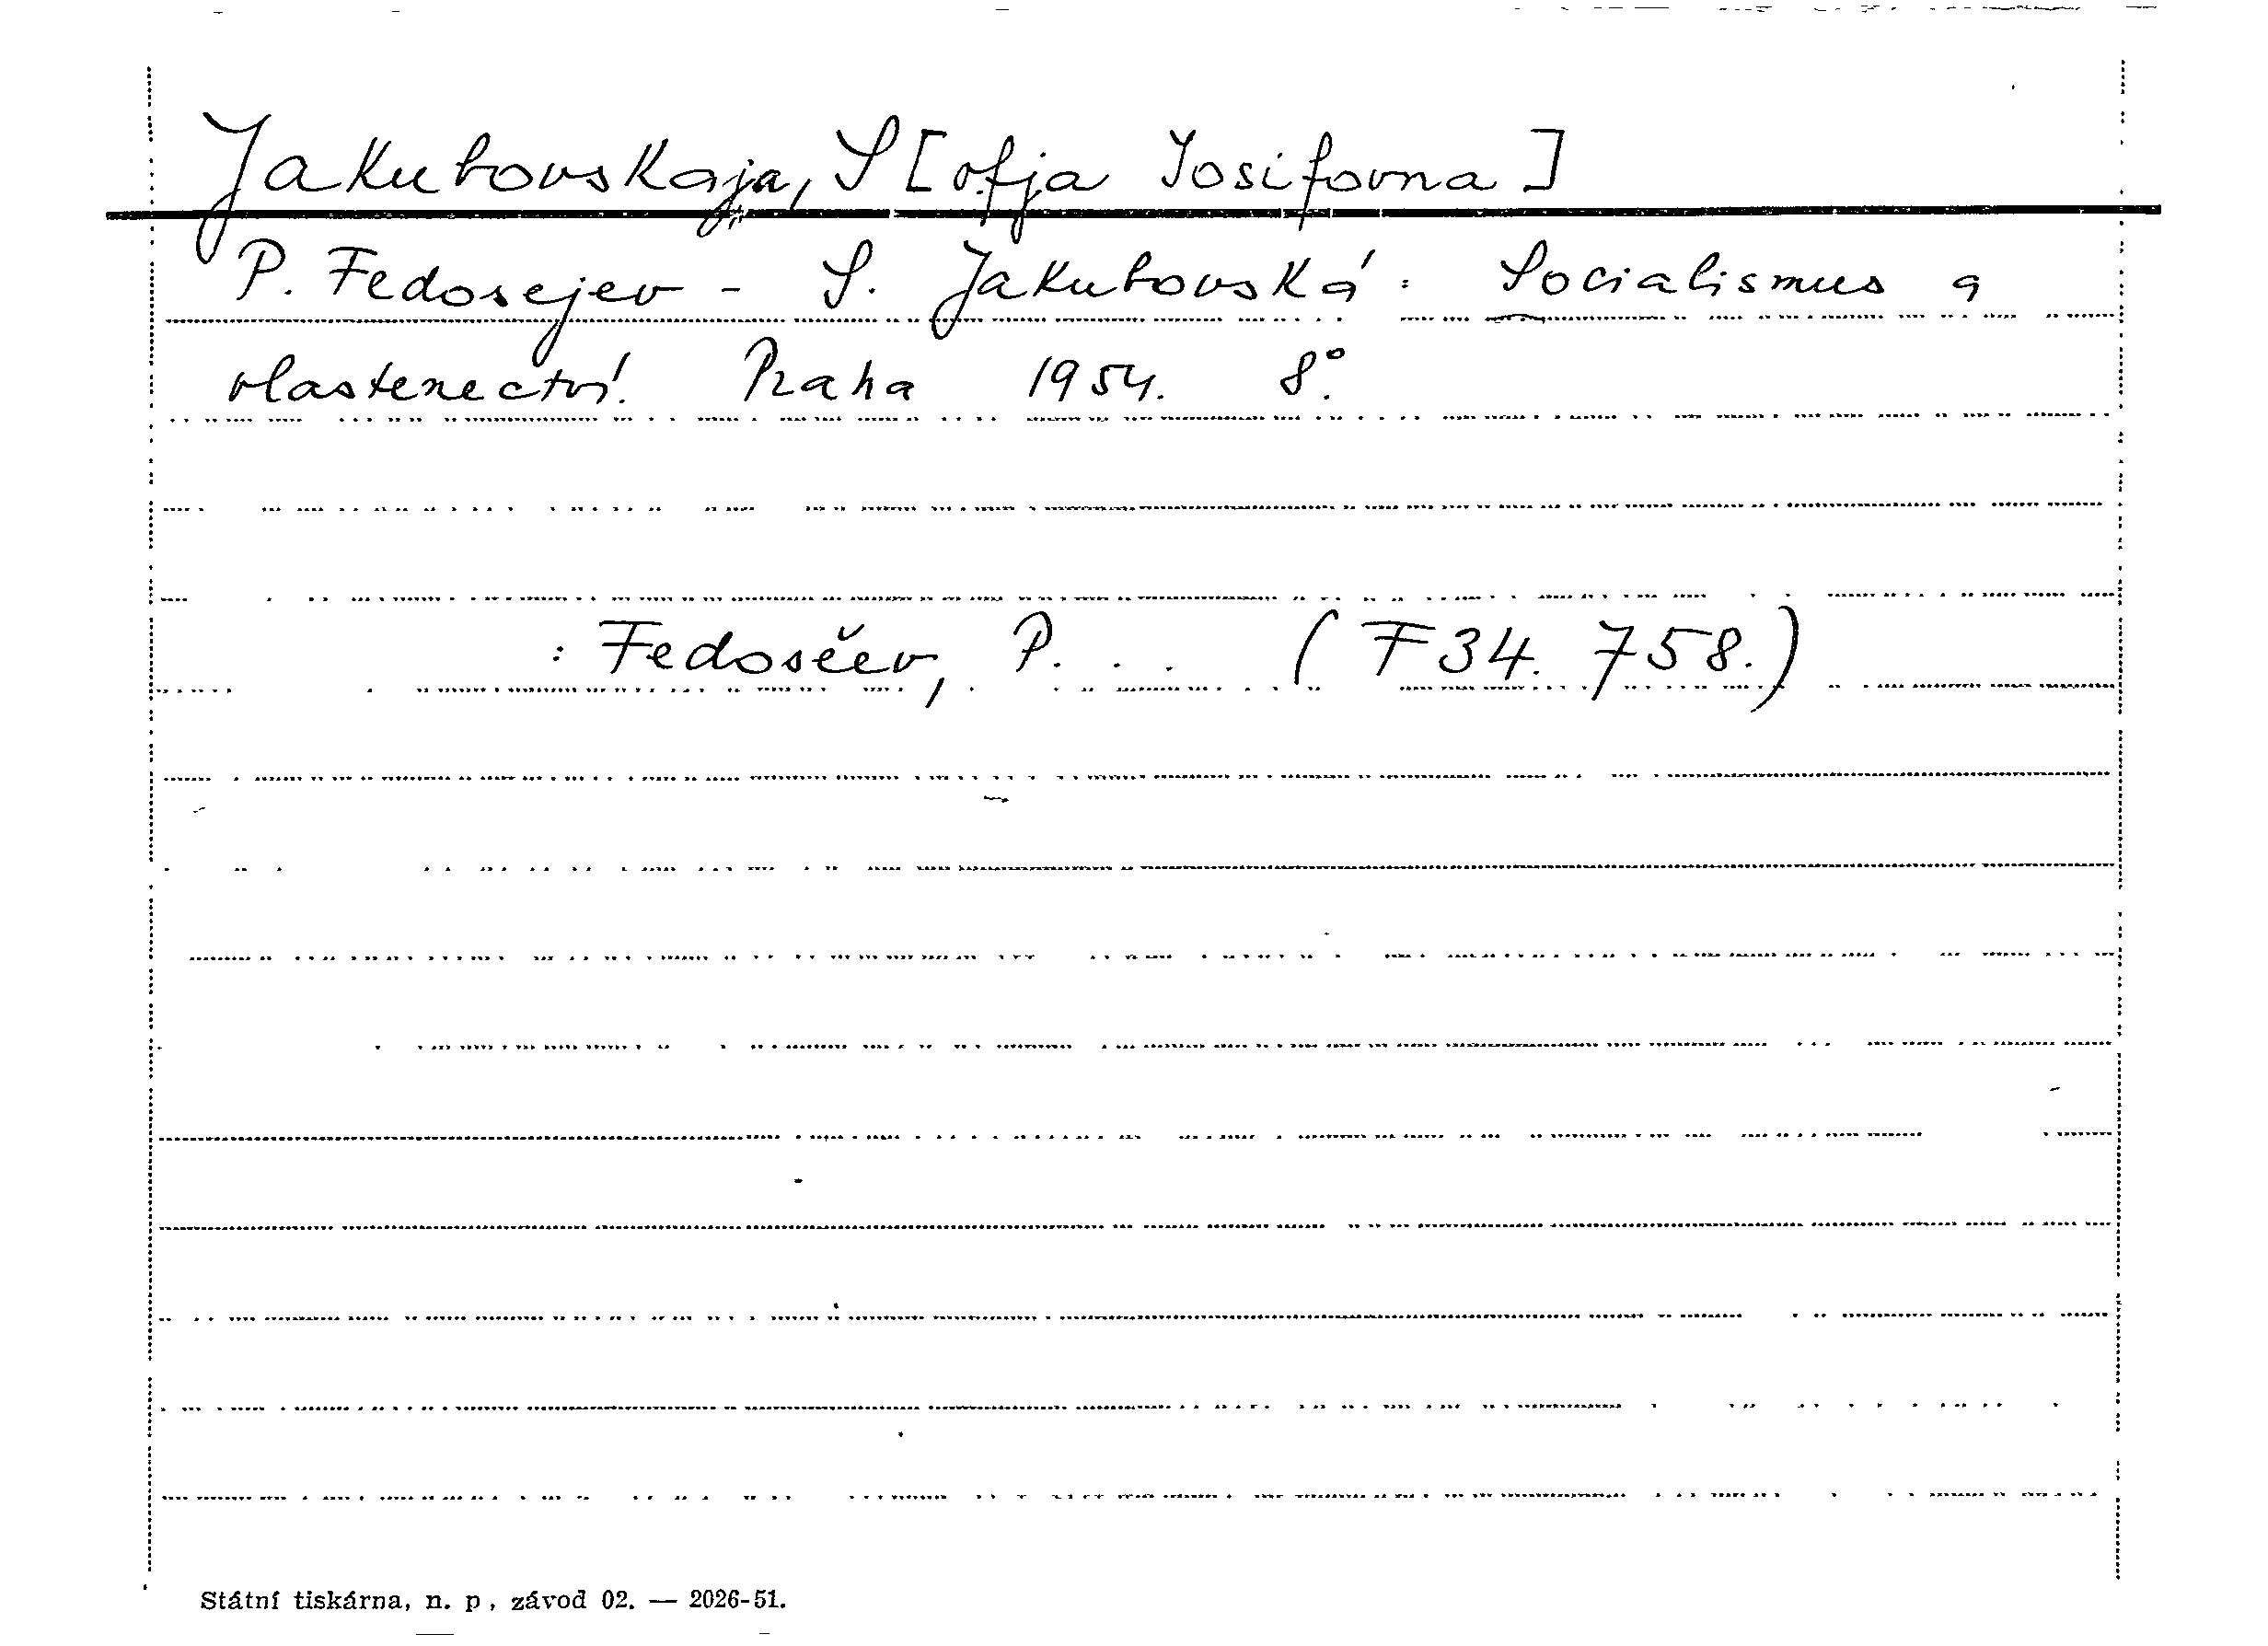 Jakubovskaja, S[ofja Iosifovna]
P. Fedosejev - S. Jakubovská: Socialismus a
vlastenectví. Praha 1954. 8°.
: Fedosěev, P. . . (F 34. 758.)
Státní tiskárna, n. p, závod 02. — 2026-51.